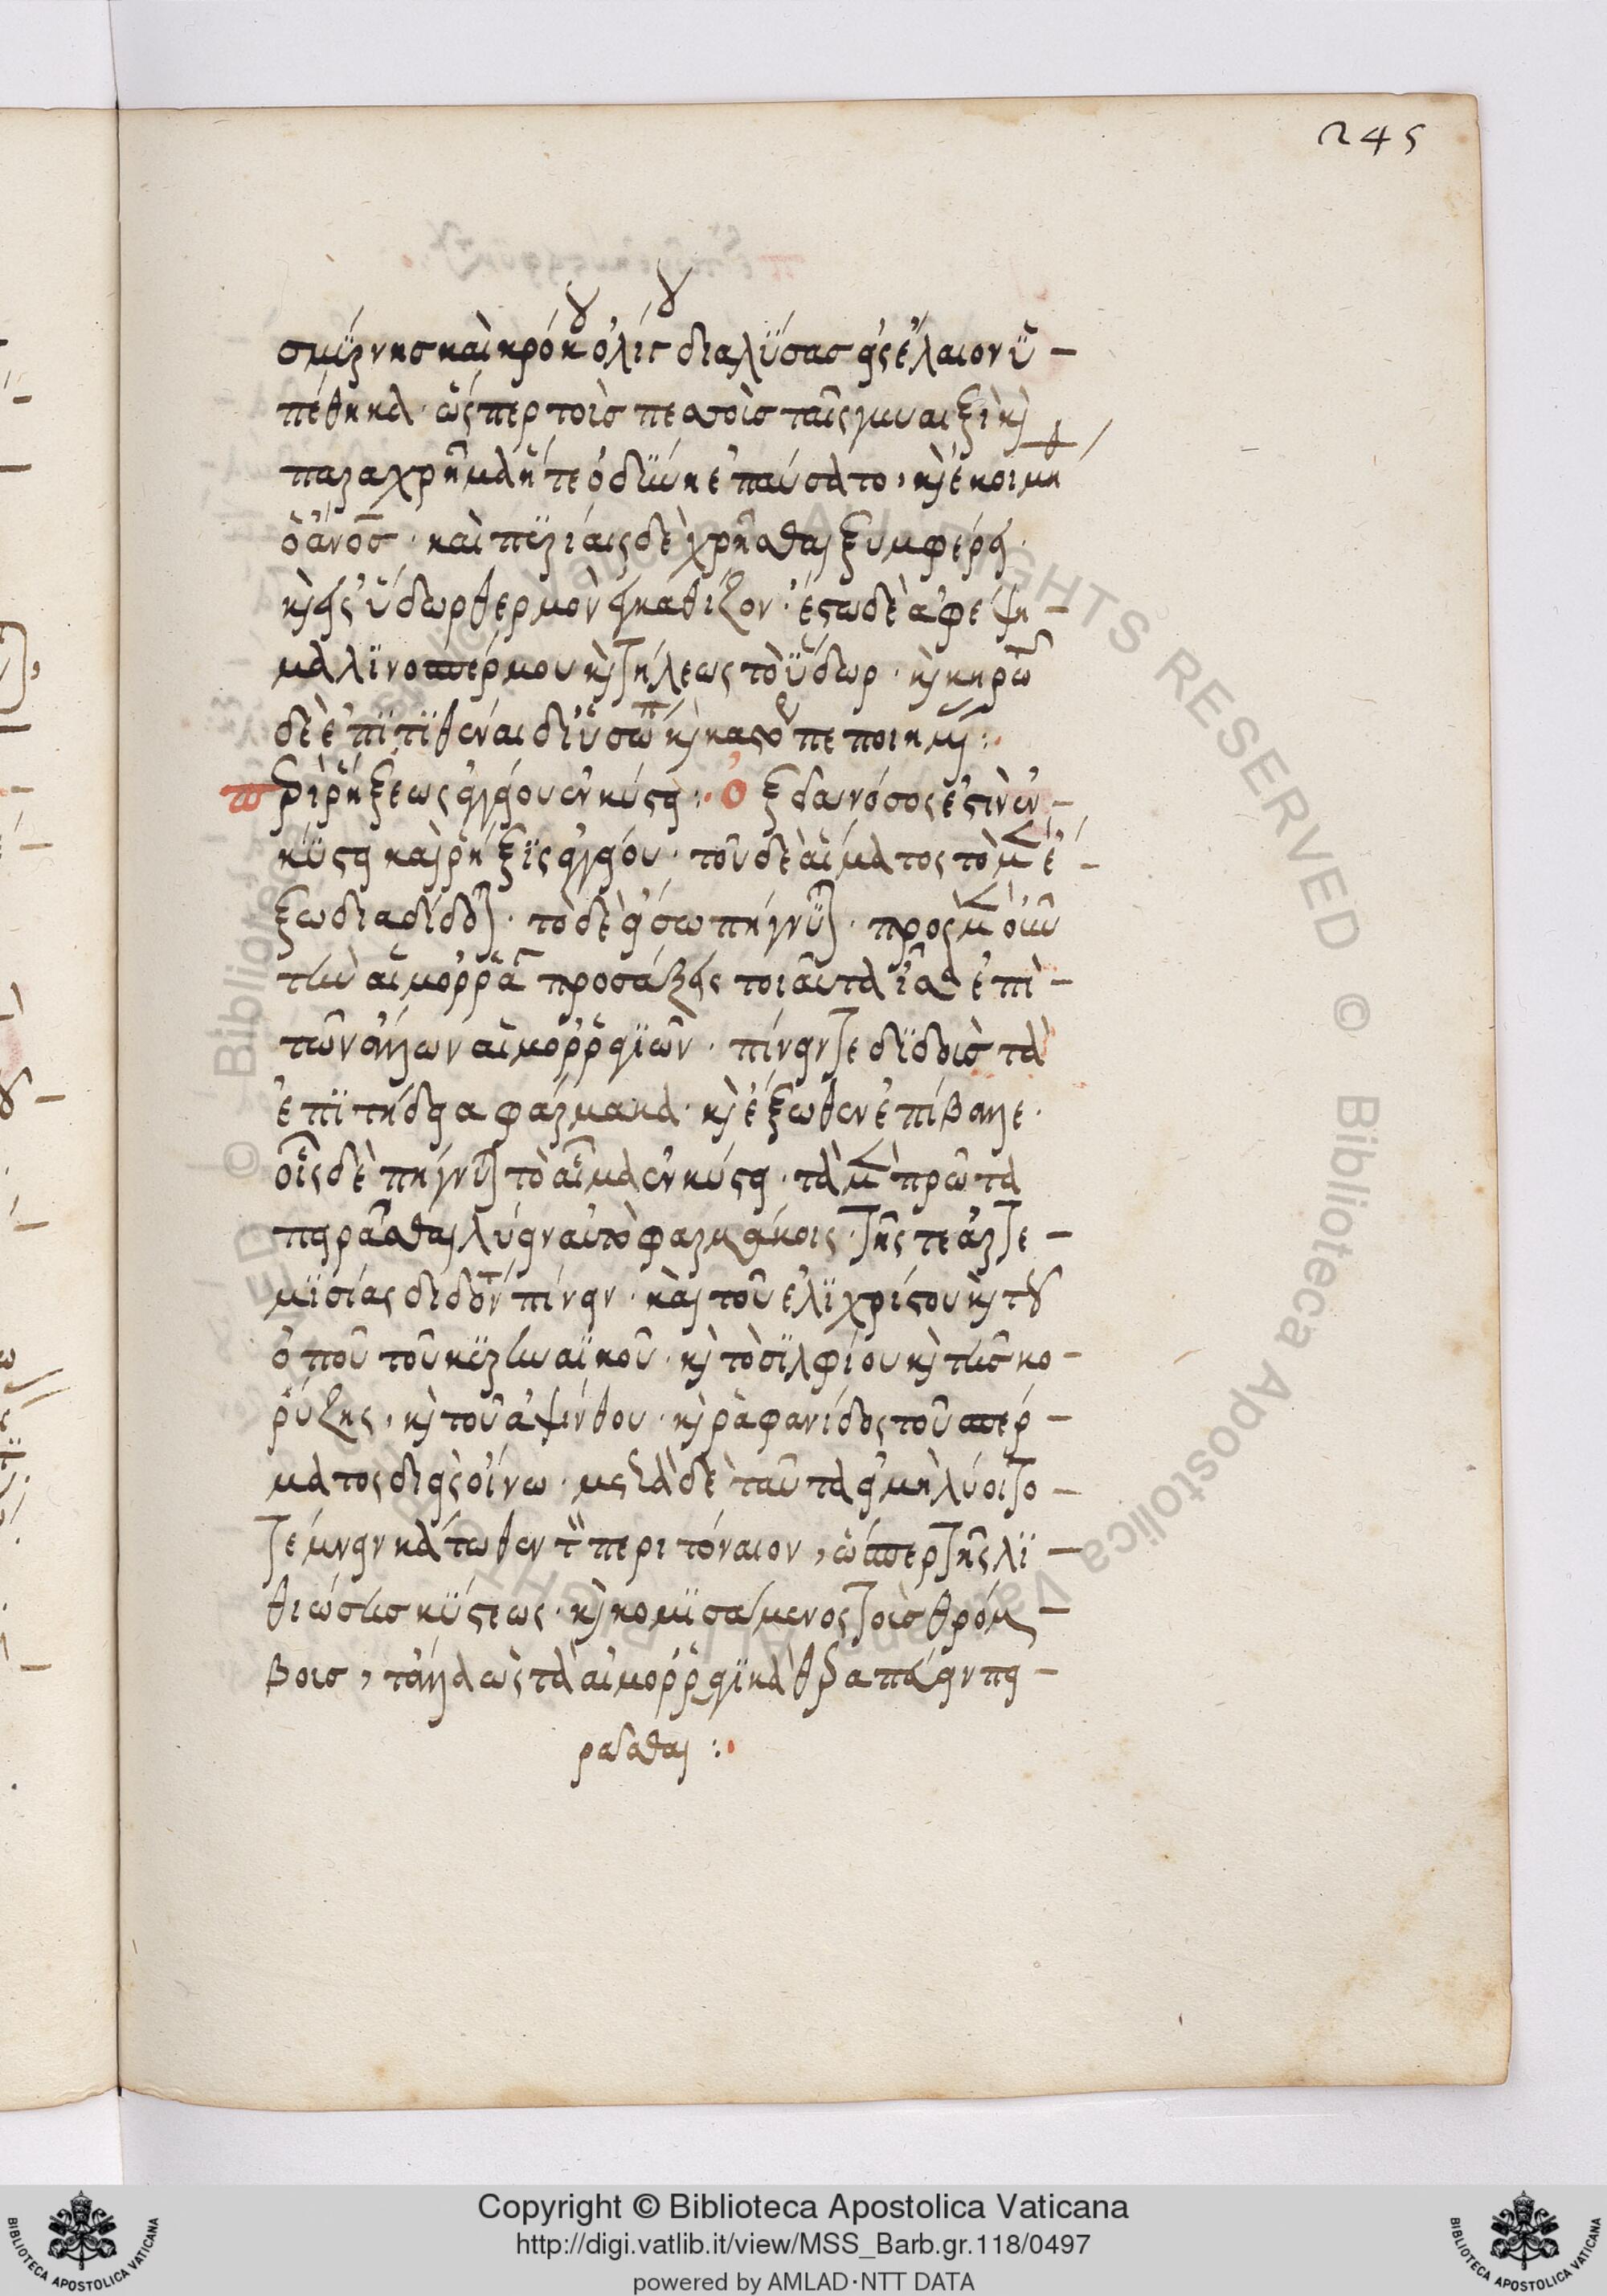 245
σμύρνης καὶ κρόκου ὀλίγου διαλύσας εἰς ἔλαιον ὑ-
πέθηκα· ὥσπερ τοῖς πεσσοῖς ταῖς γυναιξὶ καὶ
παραχρῆμα ἥτε ὀδύνη ἐπαύσατο, καὶ ἐκοιμήθ
ὁ ἄνος· καὶ πυρίαις δὲ χρῆσθαι ξυμφέρει·
καὶ εἰς ὕδωρ θερμὸν ἐγκαθίζον· ἔστω δὲ ἀφεψη-
μα λινοσπέρμου καὶ τήλεως τὸ ὕδωρ· καὶ κηρω
δὲ ἐπιτιθέναι δι ὑσώπ καὶ καστορ πεποιημ :
περὶ ῥήξεως ἀγγείου ἐν κύστει: ὀξεῖα νόσος ἐστὶν ἐν
κύστει καὶ ῥῆξις ἀγγείου· τοῦ δὲ αἵματος τὸ μὲν ἔ-
ξω διαδίδοται· τὸ δὲ εἴσω πήγνυται· πρὸς μὲν οὖν
τὴν αἱμορραγ προσάξεις τοιαῦτα οἷα ἐπὶ
τῶν ἄλλων αἱμορραγιῶν· πίνειν τε διδοὺς τὰ
ἐπιτήδεια φάρμακα· καὶ ἔξωθεν ἐπίβαλλε·
οἷς δὲ πήγνυται τὸ αἷμα ἐν κύστει· τὰ μὲν πρῶτα
πειρᾶσθαι λύειν αὐτὸ φαρμάκοις· τῆς τε ἀρτε-
μισίας διδόντ πίνειν· καὶ τοῦ ἑλιχρίσου καὶ τοῦ
ὀποῦ τοῦ κυρηναικοῦ· καὶ τὸ σιλφίου καὶ τῆς κο-
νύζης, καὶ τοῦ ἀψίνθου· καὶ ῥαφανίδος τοῦ σπέρ-
ματος δι ὄξους οἴνω· μετὰ δὲ ταῦτα εἰ μὴ λύοιτο
τέμνειν κάτωθεν τὸν περιτόναιον, ὥσπερ τῆς λι-
θιώσης κύστεως· καὶ κομισάμενος τοὺς θρόμ-
βοις, τἄλλα ὡς τὰ αἱμορραγικὰ θεραπεύειν πει-
ρᾶσθαι :
Copyright © Biblioteca Apostolica Vaticana
http://digi.vatlib.it/view/MSS_Barb.gr.118/0497
powered by AMLAD·NTT DATA
BIBLIOTECA APOSTOLICA VATICANA
BIBLIOTECA APOSTOLICA VATICANA